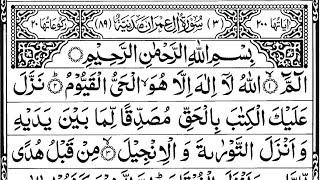 اٰیَاتُهَا ٢٠٠ (٣) سُوْرَةُ اٰلِ عِمْرٰنَ مَدَنِیَّةٌ (٨٩) رُكُوْعَاتُهَا ٢٠
بِسْمِ اللّٰهِ الرَّحْمٰنِ الرَّحِیْمِ
الٓمّٓ ۙ١ اللّٰهُ لَاۤ اِلٰهَ اِلَّا هُوَ ۙ الْحَیُّ الْقَیُّوْمُ ؕ٢ نَزَّلَ
عَلَیْكَ الْكِتٰبَ بِالْحَقِّ مُصَدِّقًا لِّمَا بَیْنَ یَدَیْهِ
وَ اَنْزَلَ التَّوْرٰىةَ وَ الْاِنْجِیْلَ ۙ٣ مِنْ قَبْلُ هُدًی